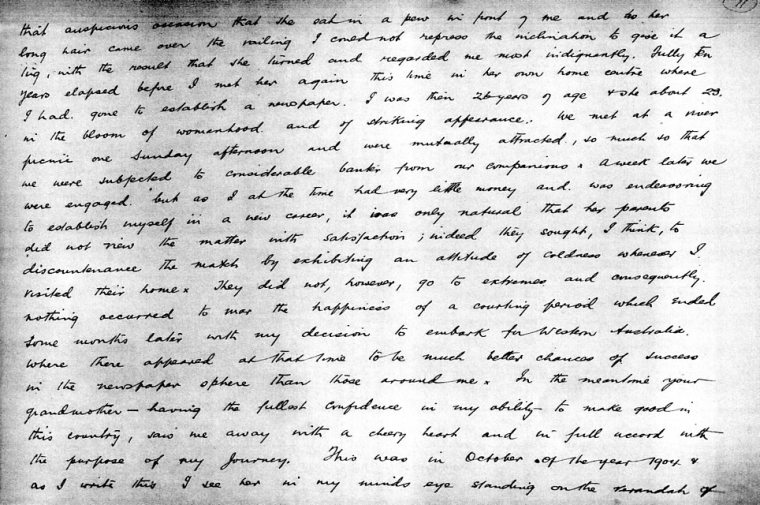 11
that auspicious occasion that she sat in a pew in front of me and as her
long hair came over the railing I could not repress the inclination to give it a
tug, with the result that she turned and regarded me most indignantly. Fully ten
years elapsed before I met her again this time in her own home centre where
I had gone to establish a newspaper. I was then 26 years of age & she about 23.
in the bloom of womanhood and of striking appearance. We met at a river
picnic one Sunday afternoon and were mutually attracted, so much so that
we were subjected to considerable banter from our companions x A week later we
were engaged. but as I at the time had very little money and was endeavoring
to establish myself in a new career, it was only natural that her parents
did not view the matter with satisfaction; indeed they sought, I think, to
discountenance the match by exhibiting an attitude of coldness whenever I
visited their home x They did not, however, go to extremes and consequently.
nothing occurred to mar the happiness of a courting period which ended
some months later with my decision to embark for Western Australia.
where there appeared at that time to be much better chances of success
in the newspaper sphere than those around me x In the meantime your
grandmother — having the fullest confidence in my ability to make good in
this country, said me away with a cheery heart and in full accord with
the purpose of my Journey. This was in October of the year 1904 &
as I write this I see her in my minds eye standing on the verandah of